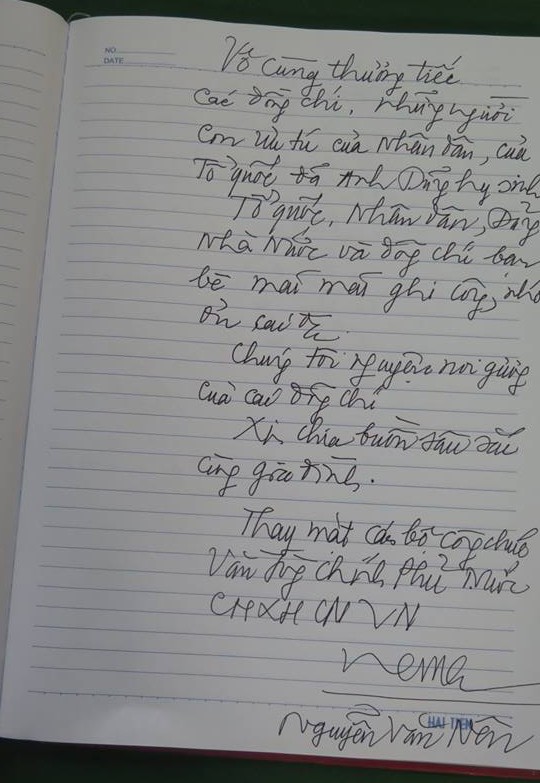 NO
DATE
Vô cùng thương tiếc
các đồng chí, những người
con ưu tú của Nhân dân, của
Tổ quốc đã Anh Dũng hy sinh
Tổ quốc, Nhân dân, Đảng
Nhà Nước và đồng chí bạn
bè mãi mãi ghi công, nhớ
ơn các đ/c.
Chúng tôi nguyện noi gương
của các đồng chí
Xin chia buồn sâu sắc
cùng gia đình.
Thay mặt cán bộ công chức
Văn phòng Chính Phủ Nước
CHXHCN VN
Nguyễn Văn Nên
HẢI TIẾN